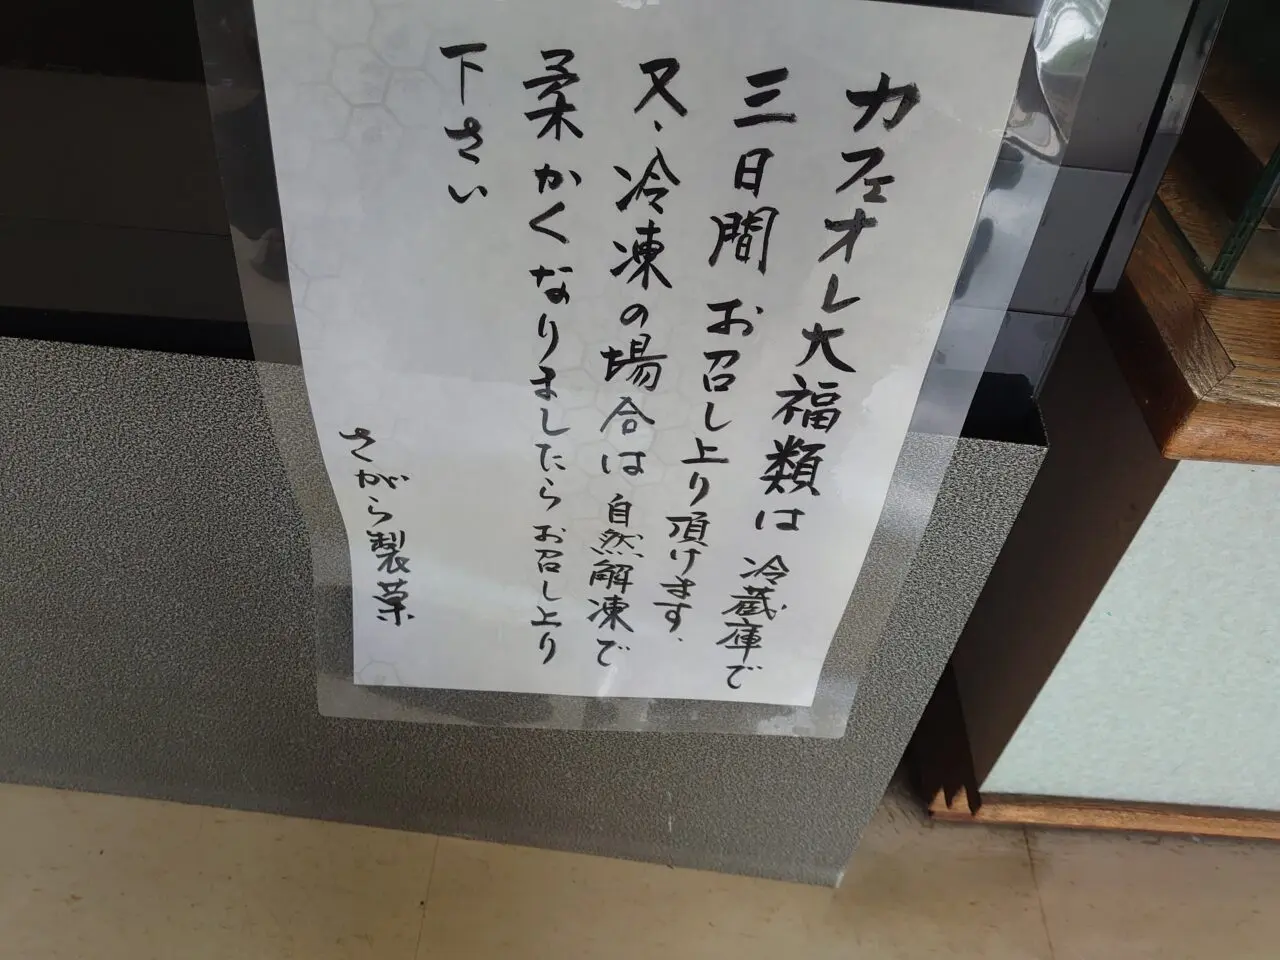 カフェオレ大福類は冷蔵庫で
三日間お召し上り頂けます。
又、冷凍の場合は自然解凍で
柔かくなりましたらお召し上り
下さい
さがら製菓